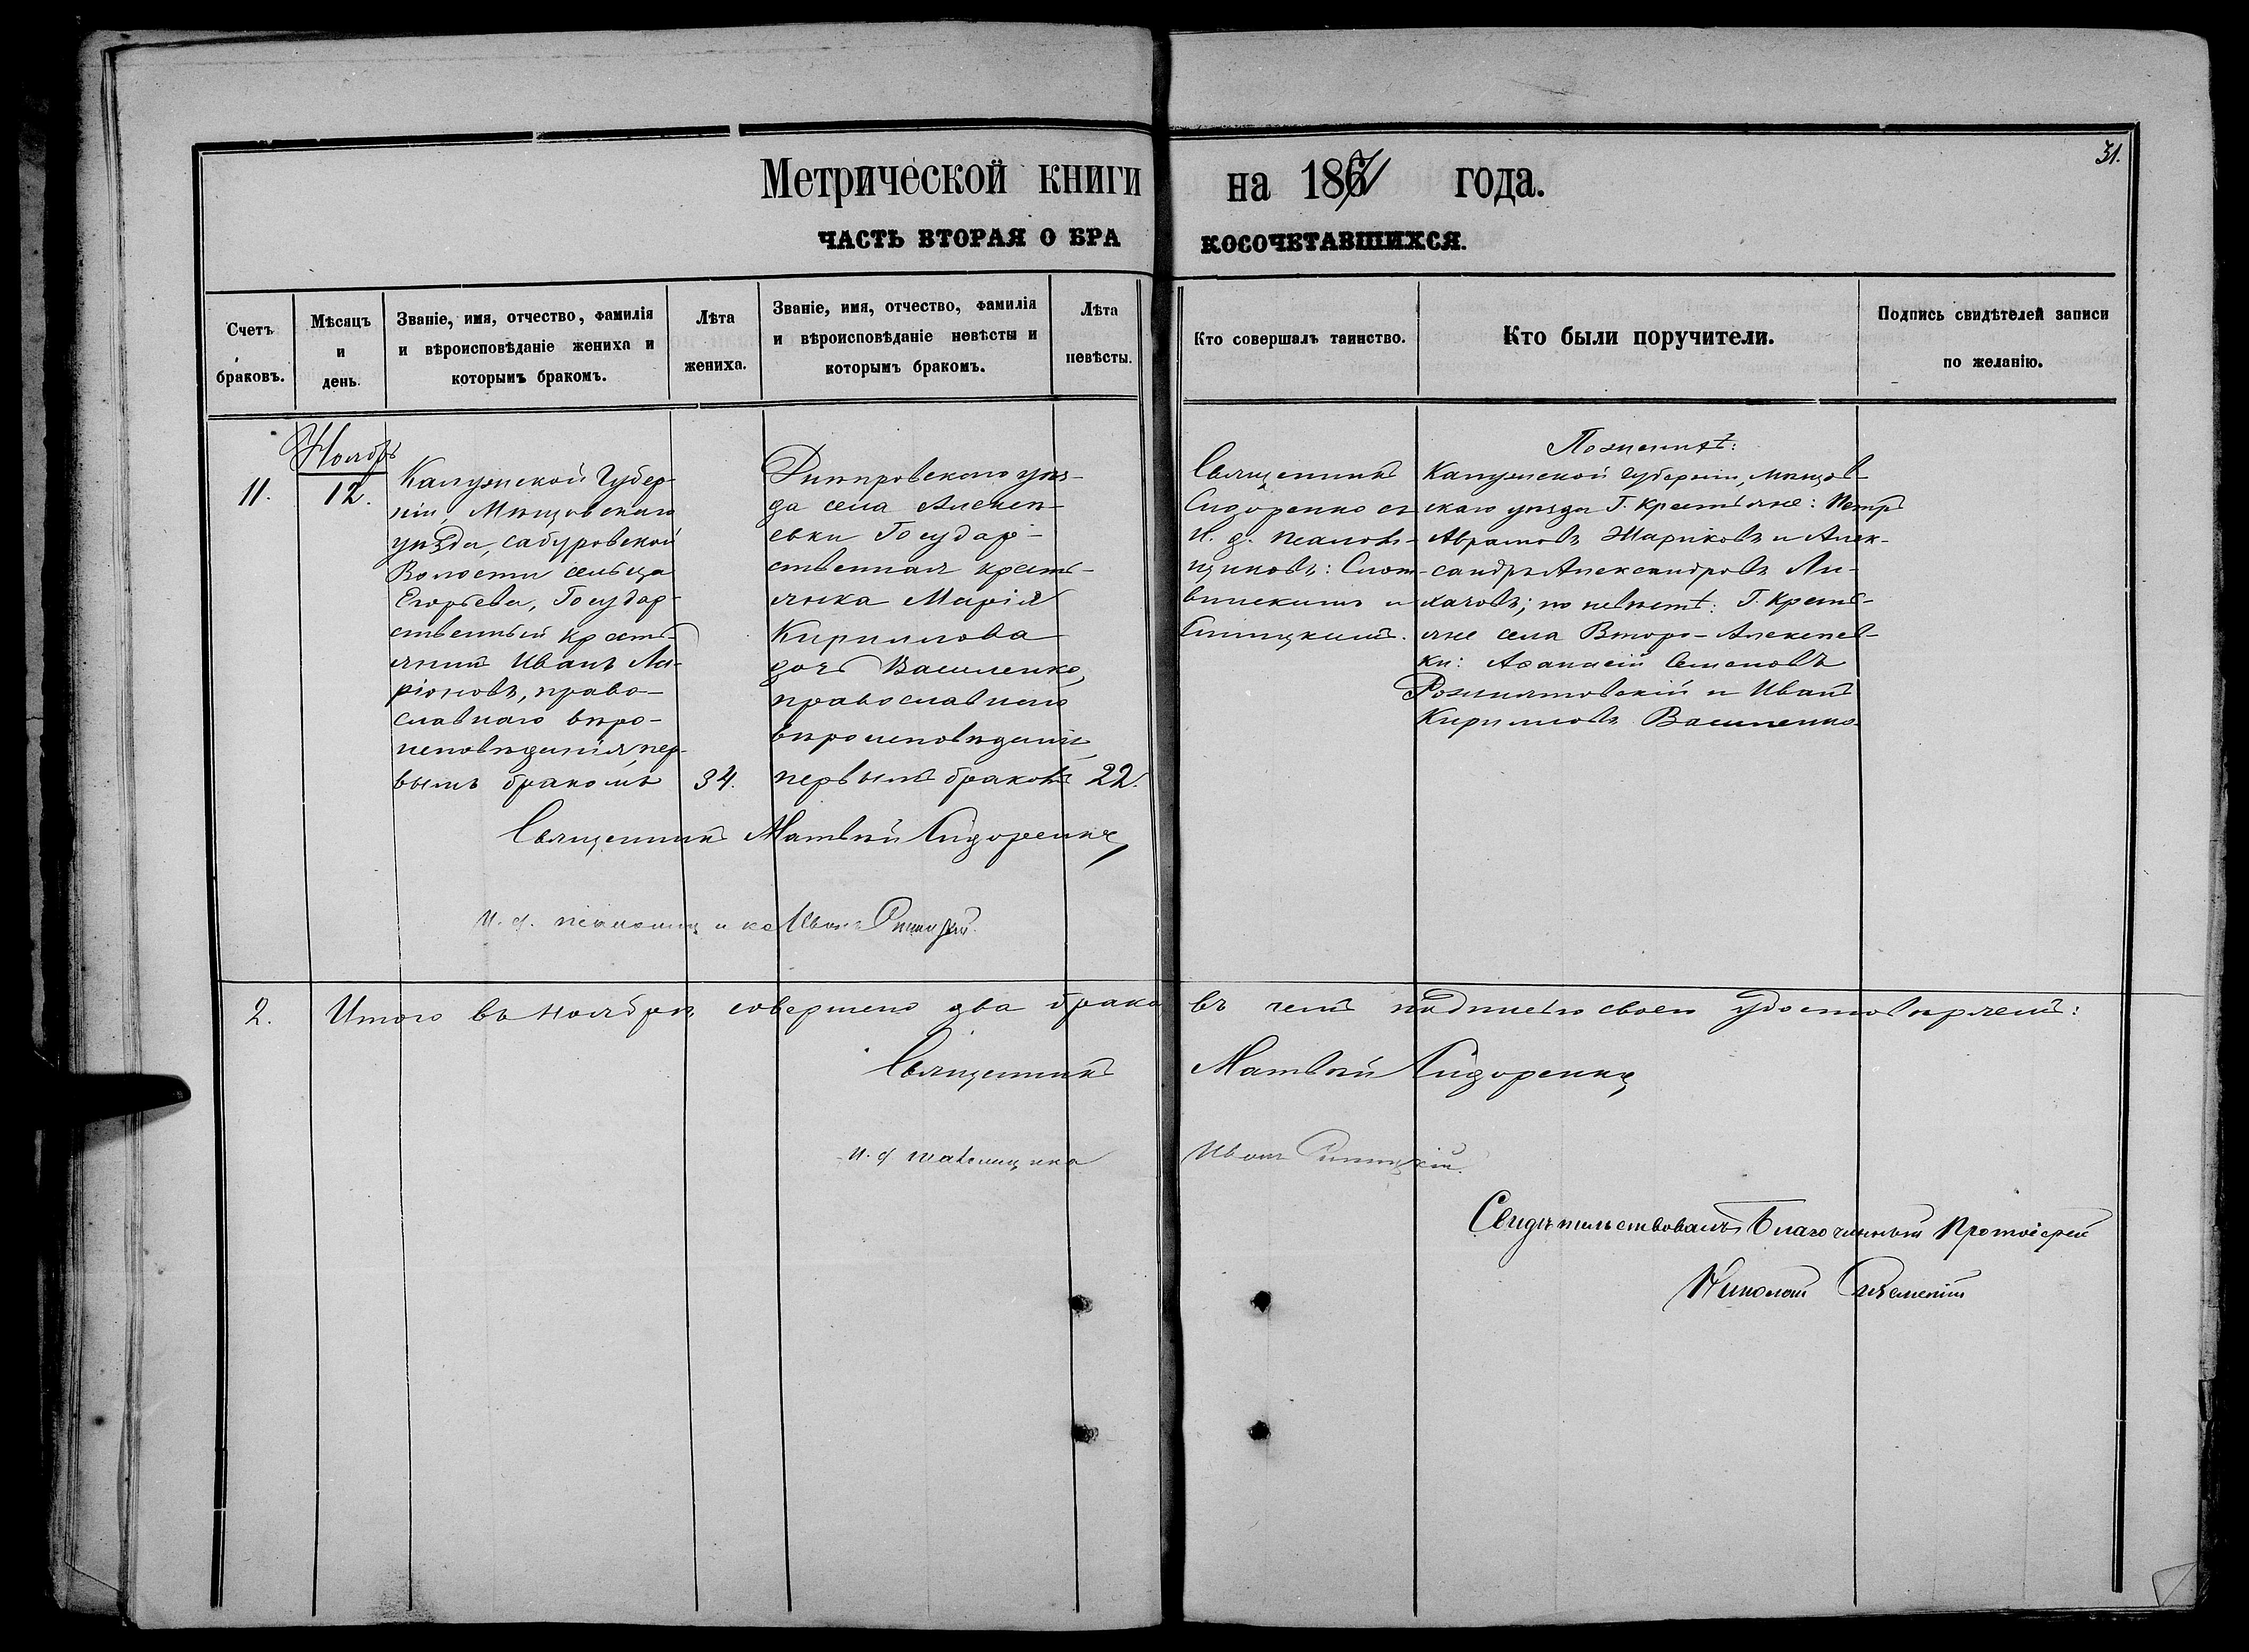 31.
Метрической книги на 1871 года.
ЧАСТЬ ВТОРАЯ О БРАКОСОЧЕТАВШИХСЯ.
Счетъ браковъ.
Мѣсяцъ и день.
Званіе, имя, отчество, фамилія
и вѣроисповѣданіе жениха и
которымъ бракомъ.
Лѣта жениха.
Званіе, имя, отчество, фамилія
и вѣроисповѣданіе невѣсты и
которымъ бракомъ.
Лѣта невѣсты.
Кто совершалъ таинство.
Кто были поручители.
Подпись свидѣтелей записи
по желанію.
11.
Ноябрь
12.
Калужской Губер-
ніи, Мѣщовскаго
уѣзда, Сабуровской
Волости сельца
Егорьева, Государ-
ственный кресть-
янинъ Иванъ Ла-
ріоновъ, право-
славнаго вѣро-
исповѣданія, пер-
вымъ бракомъ
34.
Днѣпровскаго уѣз-
да села Алексѣ-
евки Государ-
ственная кресть-
янка Марія
Кириллова
дочь Василенко,
православнаго
вѣроисповѣданія,
первымъ бракомъ
22.
Священникъ
Сидоренко съ
И. д. псалом-
щиковъ:
и
Синицкимъ.
По женихѣ:
Калужской губерніи, Мѣщов-
скаго уѣзда Г. Крестьяне: Петръ
Абрамовъ Жариковъ и Алек-
сандръ Александровъ Ли-
хачовъ; по невѣстѣ: Г. Кресть-
яне села Второ-Алексѣев-
ки: Афанасій Семеновъ
Рожнятовскій и Иванъ
Кирилловъ Василенко
Священникъ Матвѣй Сидоренко
И. д. псаломщика Иванъ Синицкій.
2. Итого въ ноябрѣ совершено два брака въ чемъ подписью своею удостовѣряемъ:
Священникъ Матвѣй Сидоренко
И. д. псаломщика Иванъ Синицкій.
Свидѣтельствовалъ Благочинный Протоіерей
Николай